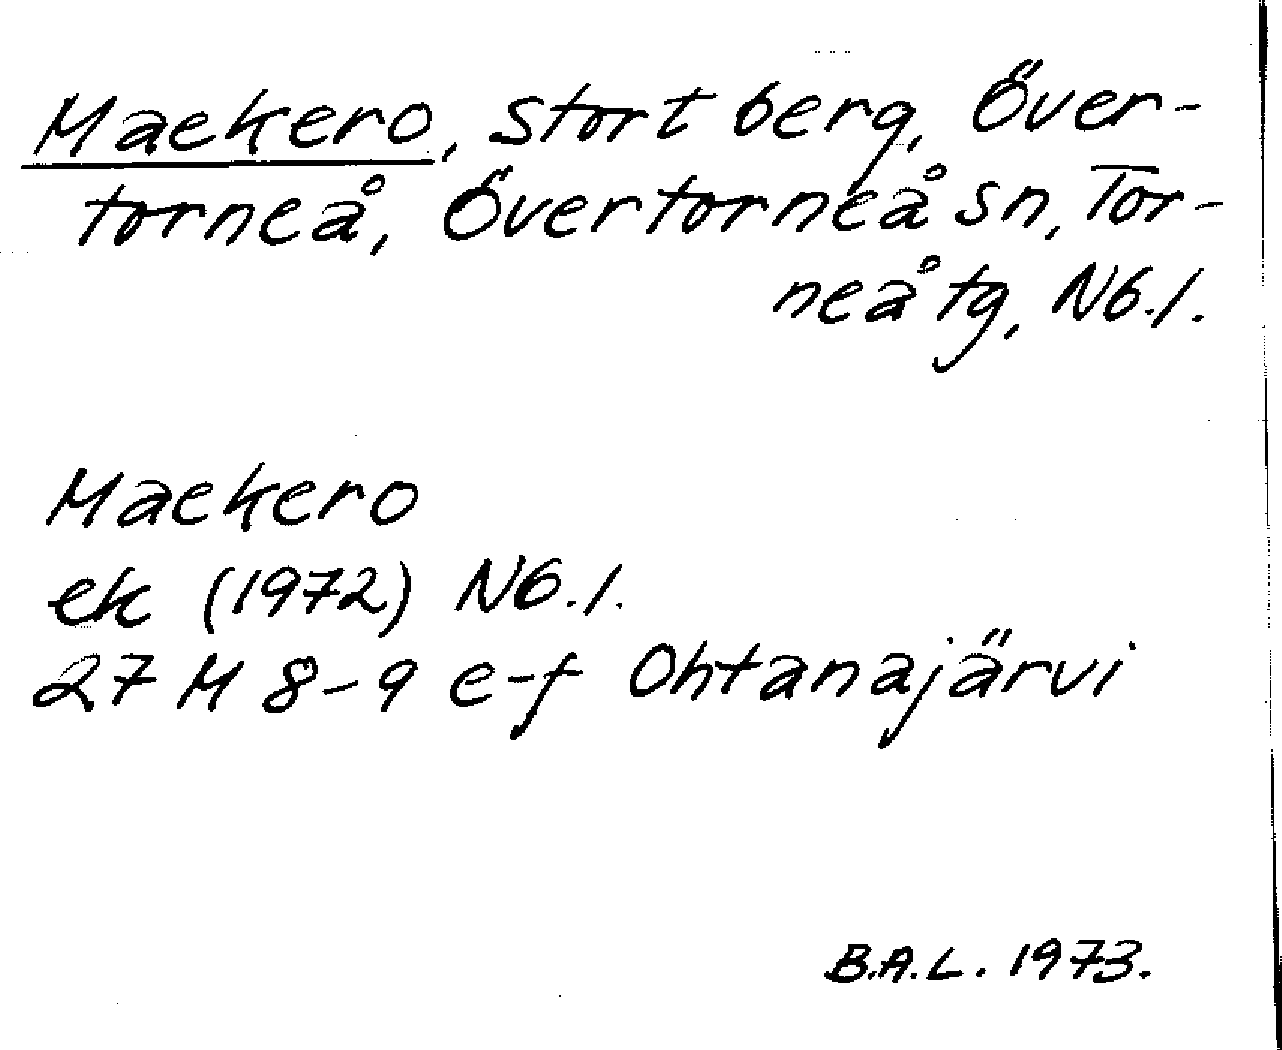 Maekero, stort berg, Över-
torneå, Övertorneå sn, Tor-
neå tg, Nb.l.
Maekero
ek (1972) Nb.l.
27 M 8-9 e-f Ohtanajärvi
B.A.L. 1973.